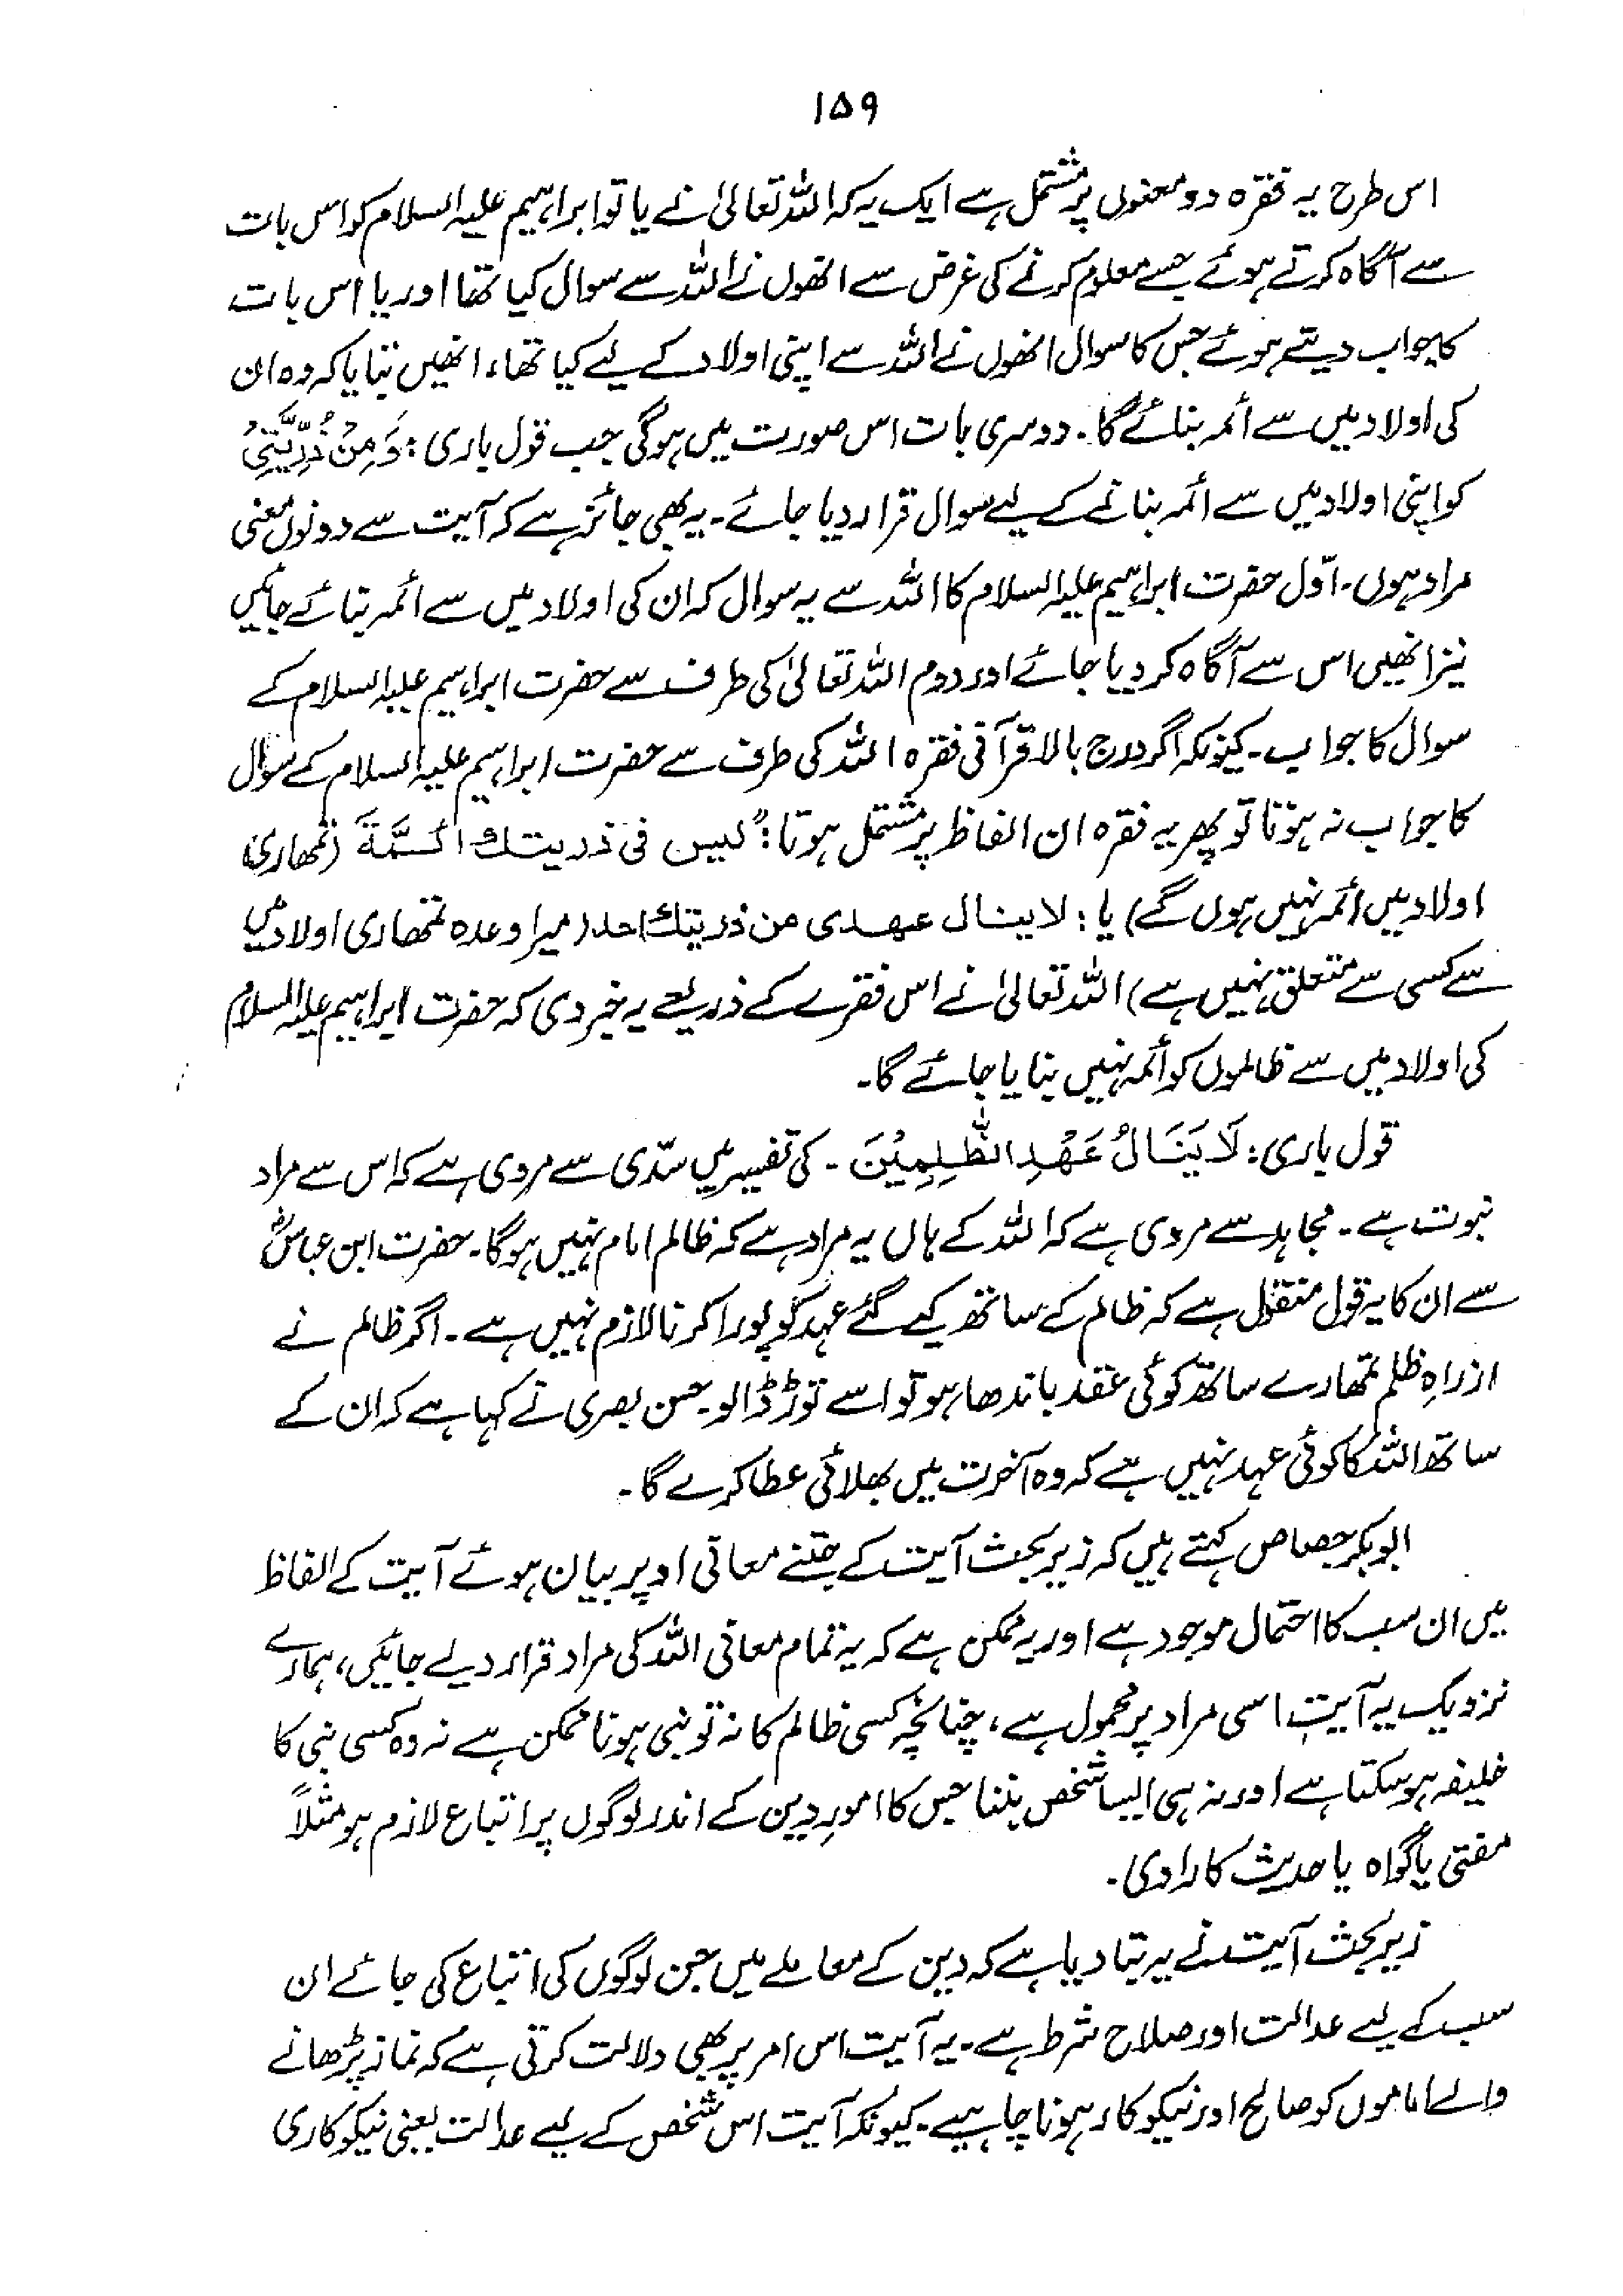 ۱۵۹
اس طرح یہ فقرہ دو معنوں پر مشتمل ہے ایک یہ کہ اللہ تعالیٰ نے یا تو ابراہیم علیہ السلام کو اس بات
سے آگاہ کرتے ہوئے جسے معلوم کرنے کی غرض سے انھوں نے اللہ سے سوال کیا تھا اور یا اس بات
کا جواب دیتے ہوئے جس کا سوال انھوں نے اللہ سے اپنی اولاد کے لیے کیا تھا، انھیں بتایا کہ وہ ان
کی اولاد میں سے ائمہ بنائے گا۔ دوسری بات اس صورت میں ہوگی جب قول باری: وَمِنْ ذُرِّيَّتِىْ
کو اپنی اولاد میں سے ائمہ بنانے کے لیے سوال قرار دیا جائے۔ یہ بھی جائز ہے کہ آیت سے دونوں معنی
مراد ہوں۔ اوّل حضرت ابراہیم علیہ السلام کا اللہ سے یہ سوال کہ ان کی اولاد میں سے ائمہ بنائے جائیں
نیز انھیں اس سے آگاہ کر دیا جائے اور دوم اللہ تعالیٰ کی طرف سے حضرت ابراہیم علیہ السلام کے
سوال کا جواب۔ کیونکہ اگر درج بالا قرآنی فقرہ اللہ کی طرف سے حضرت ابراہیم علیہ السلام کے سوال
کا جواب نہ ہوتا تو پھر یہ فقرہ ان الفاظ پر مشتمل ہوتا: "ليس فى ذريتك ائمة (تمھاری
اولاد میں ائمہ نہیں ہوں گے) یا: لا ينال عهدى من ذريتك احد (میرا وعدہ تمھاری اولاد میں
سے کسی سے متعلق نہیں ہے) اللہ تعالیٰ نے اس فقرے کے ذریعے یہ خبر دی کہ حضرت ابراہیم علیہ السلام
کی اولاد میں سے ظالموں کو ائمہ نہیں بنایا جائے گا۔
قول باری: لَا يَنَالُ عَهْدِى الظّٰلِمِيْنَ ۔ کی تفسیر میں سدّی سے مروی ہے کہ اس سے مراد
نبوت ہے۔ مجاہد سے مروی ہے کہ اللہ کے ہاں یہ مراد ہے کہ ظالم امام نہیں ہوگا۔ حضرت ابن عباسؓ
سے ان کا یہ قول منقول ہے کہ ظالم کے ساتھ کیے گئے عہد کو پورا کرنا لازم نہیں ہے۔ اگر ظالم نے
ازراہِ ظلم تمھارے ساتھ کوئی عقد باندھا ہو تو اسے توڑ ڈالو۔ حسن بصری نے کہا ہے کہ ان کے
ساتھ اللہ کا کوئی عہد نہیں ہے کہ وہ آخرت میں بھلائی عطا کرے گا۔
ابوبکر جصاص کہتے ہیں کہ زیر بحث آیت کے جتنے معانی اوپر بیان ہوئے آیت کے الفاظ
میں ان سب کا احتمال موجود ہے اور یہ ممکن ہے کہ یہ تمام معانی اللہ کی مراد قرار دیے جائیں، ہمارے
نزدیک یہ آیت اسی مراد پر محمول ہے، چنانچہ کسی ظالم کا نہ تو نبی ہونا ممکن ہے نہ وہ کسی نبی کا
خلیفہ ہو سکتا ہے اور نہ ہی ایسا شخص بننا جس کا امورِ دین کے اندر لوگوں پر اتباع لازم ہو مثلاً
مفتی یا گواہ یا حدیث کا راوی۔
زیر بحث آیت نے یہ بتا دیا ہے کہ دین کے معاملے میں جن لوگوں کی اتباع کی جائے ان
سب کے لیے عدالت اور صلاح شرط ہے۔ یہ آیت اس امر پر بھی دلالت کرتی ہے کہ نماز پڑھانے
والے اماموں کو صالح اور نیکو کار ہونا چاہیے۔ کیونکہ آیت اس شخص کے لیے عدالت یعنی نیکو کاری